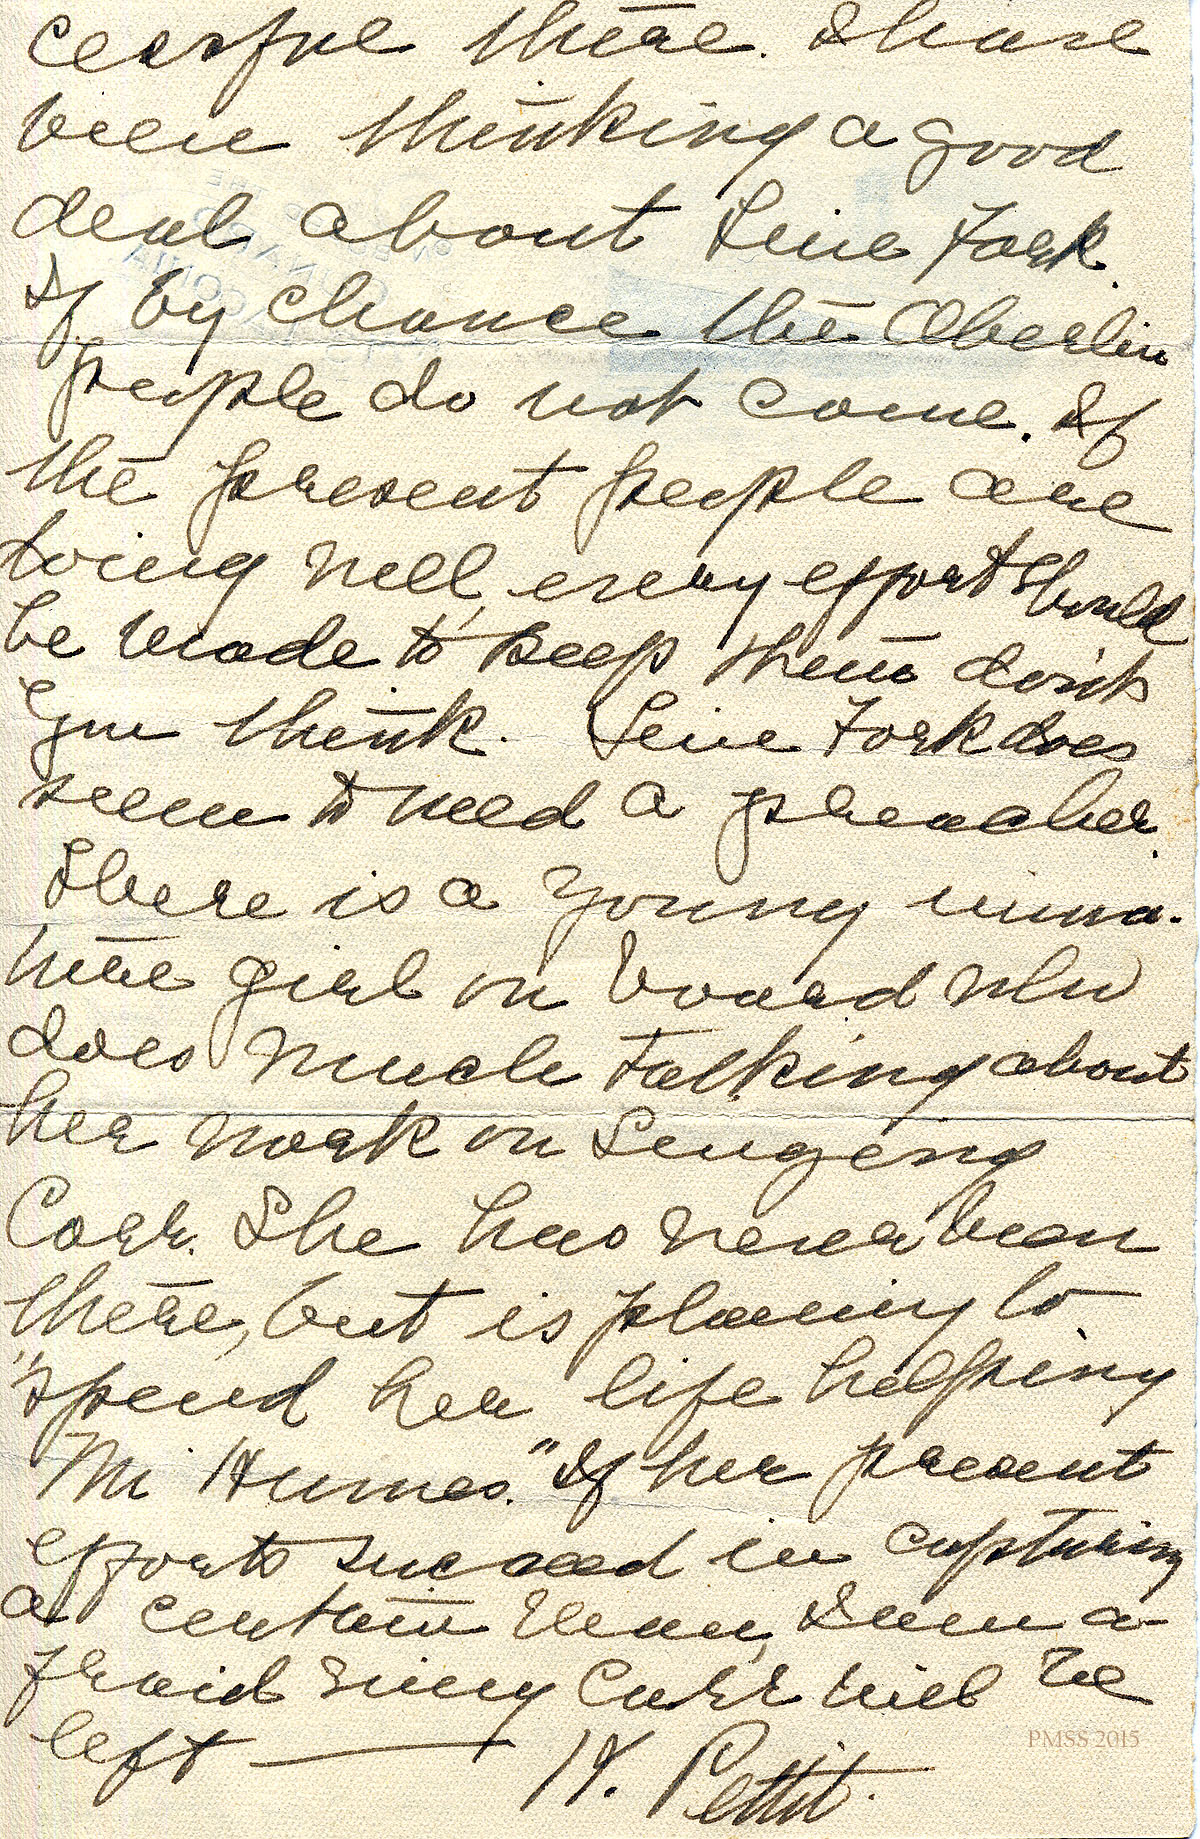 cessful there. I have
been thinking a good
deal about Line Fork.
If by chance the Oberlin
people do not come. If
the present people are
doing well, every effort should
be made to keep them don't
you think. Line Fork does
seem to need a preacher.
There is a young imma-
ture girl on board who
does much talking about
her work on Lingering
Carr. She has never been
there, but is planing to
"spend her life helping
Mr Humes." If her present
efforts succeed in capturing
a certain man, I am a-
fraid Carr will be
left — H. Pettit.
PMSS 2015